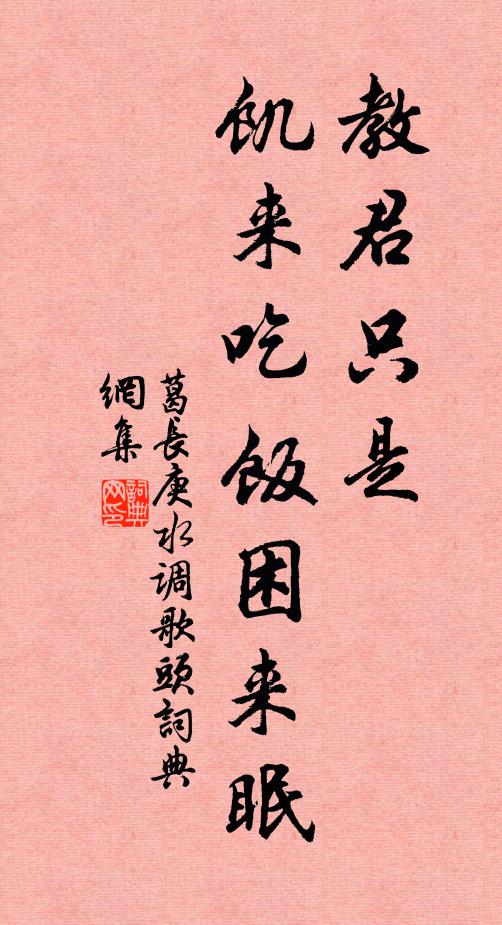 教君只是
飢来吃飯困来眠
葛長庚水调歌頭詞典
網集
詞典
网印